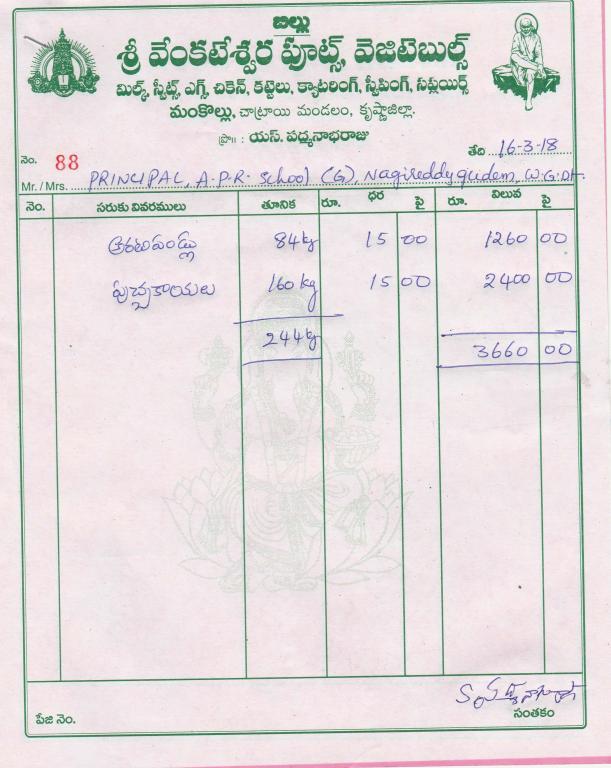 బిల్లు
శ్రీ వేంకటేశ్వర ఫూట్స్, వెజిటెబుల్స్
మిల్క్, స్వీట్స్, ఎగ్స్, చికెన్, కట్టెలు, క్యాటరింగ్, స్వీపింగ్, సప్లయిర్స్
మంకొల్లు, చాట్రాయి మండలం, కృష్ణాజిల్లా.
ప్రొ॥ : యస్. పద్మనాభరాజు
నెం. 88 తేది 16-3-18
Mr. / Mrs. PRINCIPAL, A.P.R. School (G), Nagireddygudem, W.G.Dt.
నెం. సరుకు వివరములు తూనిక రూ. ధర పై రూ. విలువ పై
అరటిపండ్లు 84kg 15 00 1260 00
పుచ్చకాయలు 160 kg 15 00 2400 00
244kg 3660 00
పేజి నెం. సంతకం